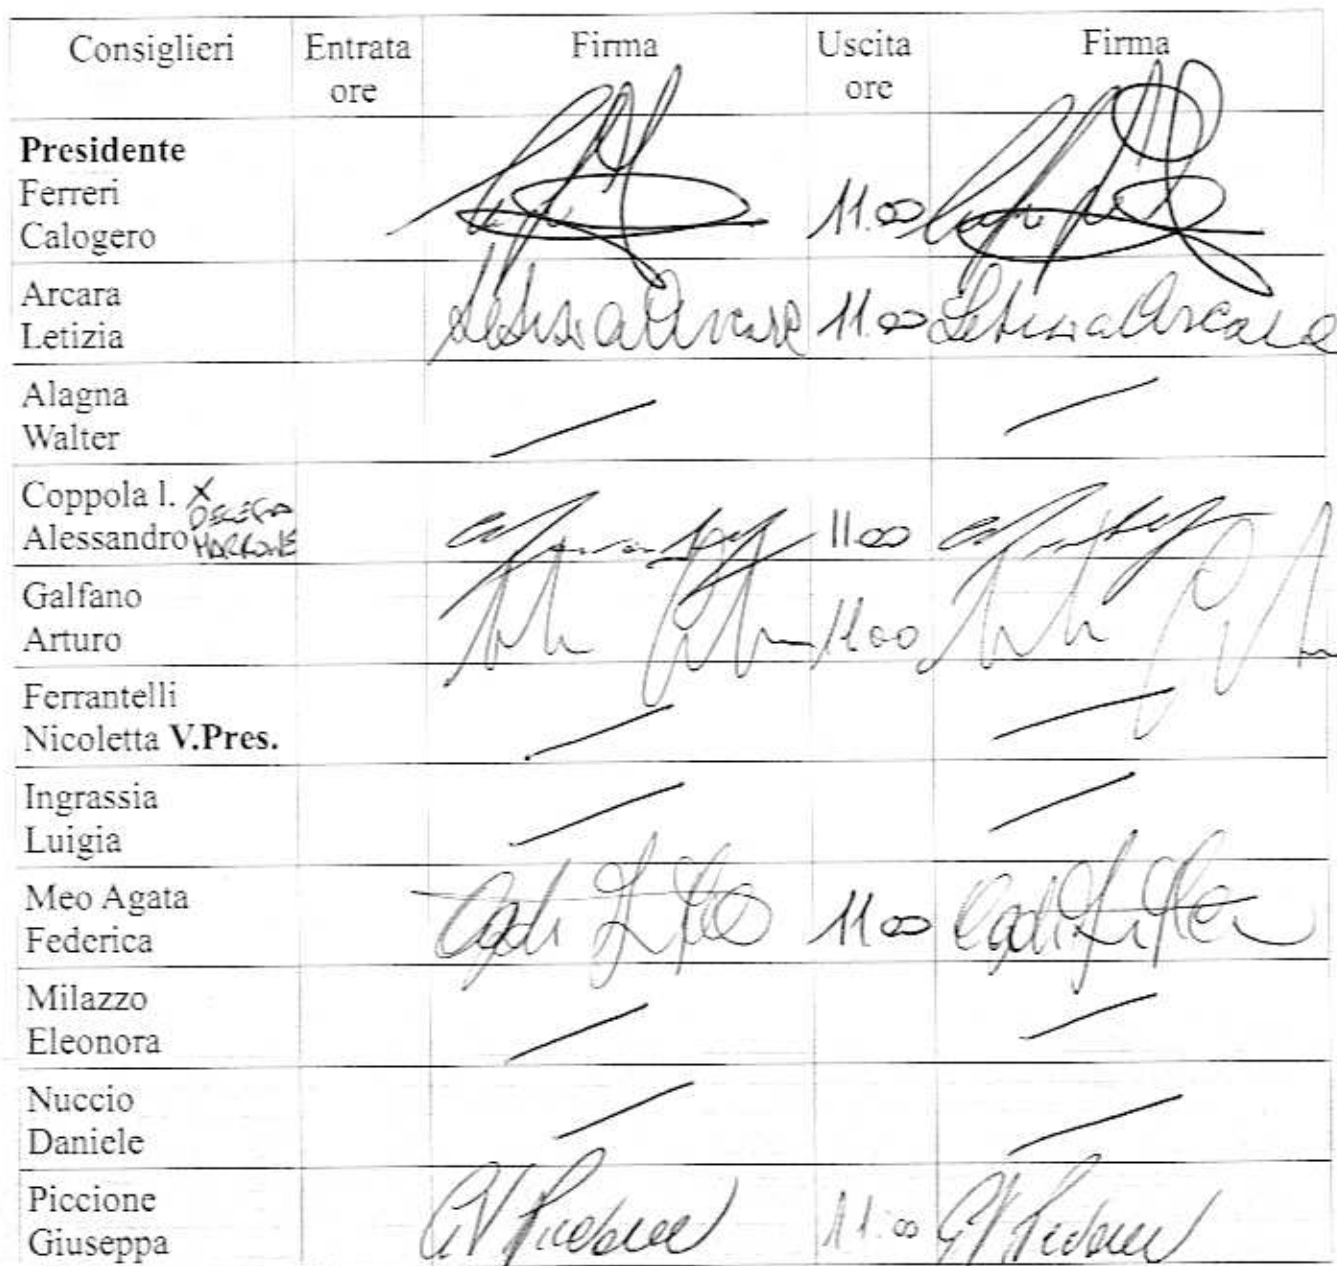 Consiglieri Entrata ore Firma Uscita ore Firma
Presidente
Ferreri
Calogero 11.00
Arcara
Letizia Letizia Arcara 11.00 Letizia Arcara
Alagna
Walter
Coppola l. X DELEGA
Alessandro MARRONE 11.00
Galfano
Arturo 11.00
Ferrantelli
Nicoletta V.Pres.
Ingrassia
Luigia
Meo Agata
Federica 11.00
Milazzo
Eleonora
Nuccio
Daniele
Piccione
Giuseppa GV Piccione 11:00 GV Piccione